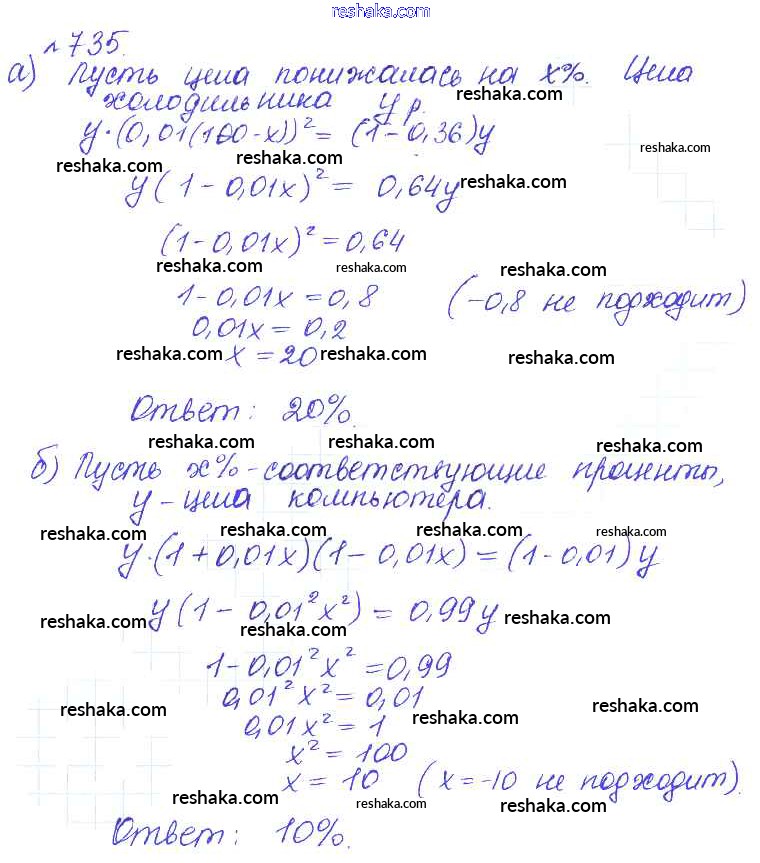 reshaka.com
№735.
а) Пусть цена понижалась на x%. Цена
reshaka.com
холодильника y р.
y·(0,01(100-x))² = (1-0,36)y
reshaka.com
reshaka.com reshaka.com
y(1-0,01x)² = 0,64y
reshaka.com
(1-0,01x)² = 0,64
reshaka.com reshaka.com reshaka.com
1-0,01x = 0,8 (-0,8 не подходит)
0,01x = 0,2
reshaka.com x = 20 reshaka.com reshaka.com
Ответ: 20%.
reshaka.com reshaka.com reshaka.com
б) Пусть x% - соответствующие проценты,
y - цена компьютера.
reshaka.com reshaka.com reshaka.com reshaka.com
y·(1+0,01x)(1-0,01x) = (1-0,01)y
y(1-0,01²x²) = 0,99y
reshaka.com reshaka.com reshaka.com
1-0,01²x² = 0,99
0,01²x² = 0,01
reshaka.com reshaka.com reshaka.com
0,01x² = 1
x² = 100
x = 10 (x = -10 не подходит).
reshaka.com reshaka.com reshaka.com
Ответ: 10%.